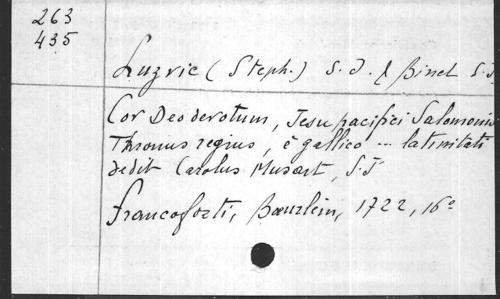 263
435
Luzvic (Steph.) S. J. & Binet S. J.
Cor Deo devotum, Jesu pacifici Salomonis
Thronus regius, è gallico ... latinitati
dedit Carolus Musart, S. J
Francoforti, Bœnrlein, 1722, 16º